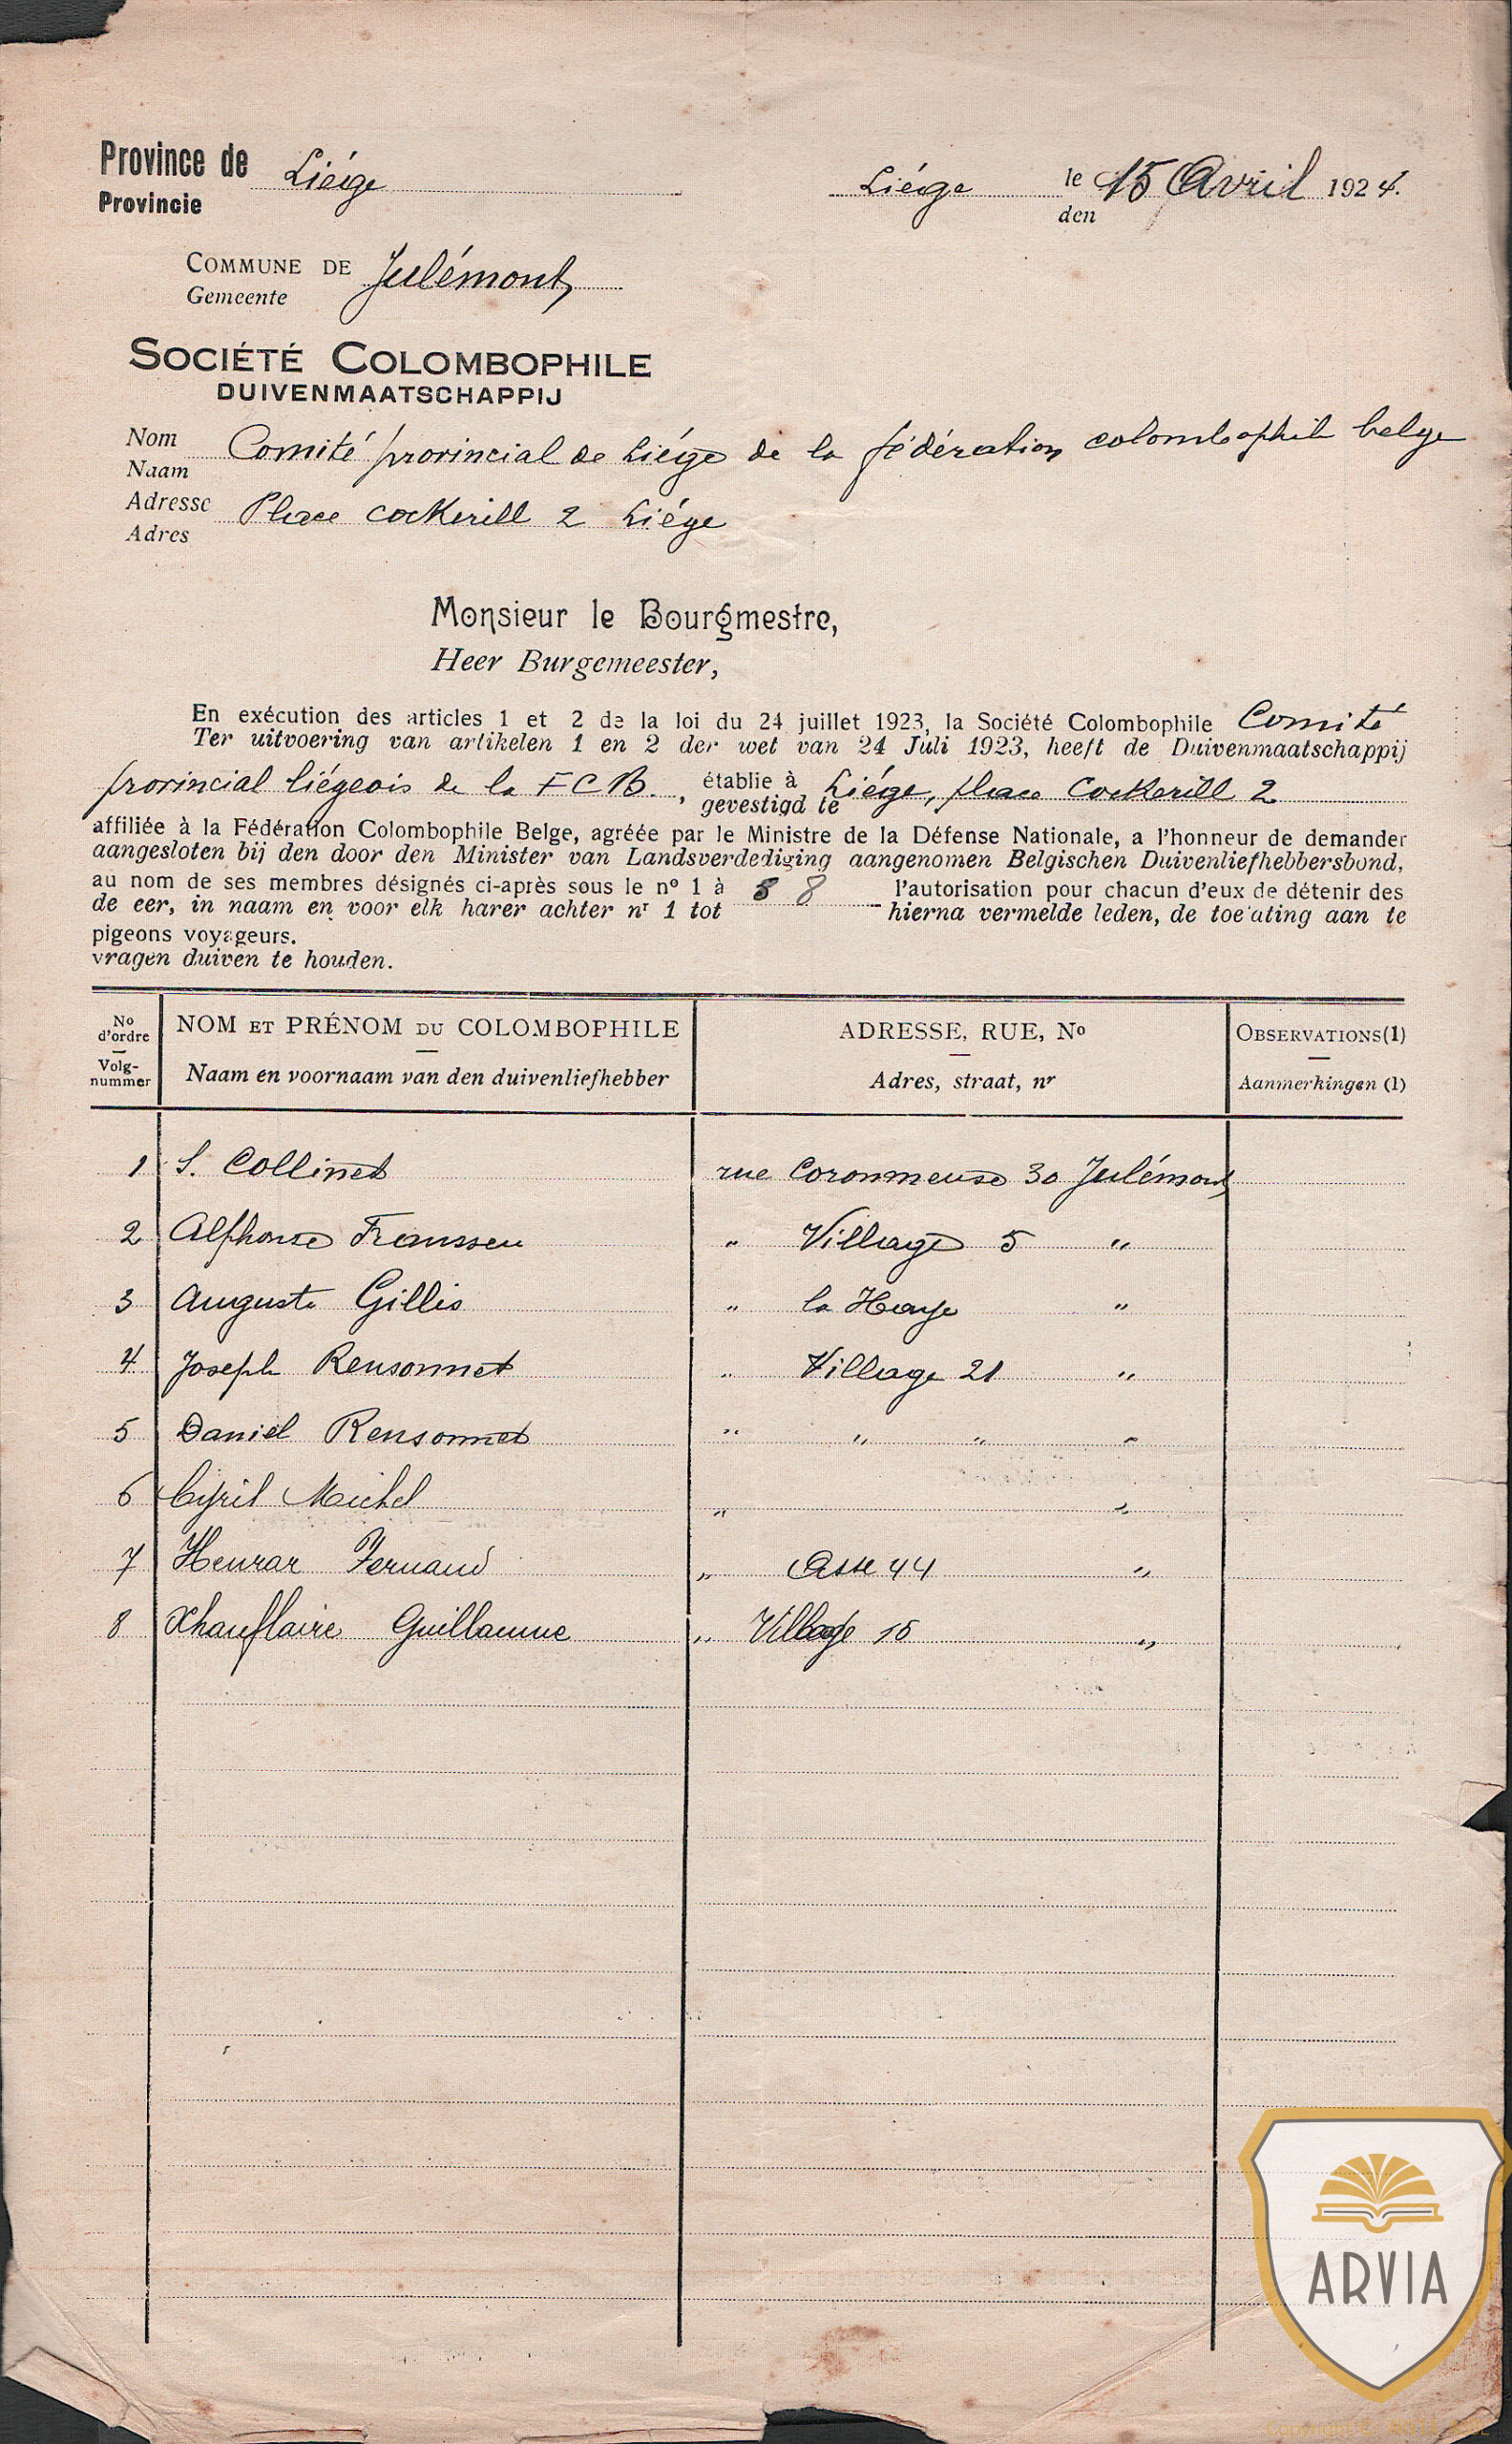 Province de Liége
Provincie
Liége le 15 Avril 1924.
den
COMMUNE DE Julémont
Gemeente
SOCIÉTÉ COLOMBOPHILE
DUIVENMAATSCHAPPIJ
Nom Comité provincial de Liége de la fédération colombophile belge
Naam
Adresse Place Cockerill 2 Liége
Adres
Monsieur le Bourgmestre,
Heer Burgemeester,
En exécution des articles 1 et 2 de la loi du 24 juillet 1923, la Société Colombophile Comité
Ter uitvoering van artikelen 1 en 2 der wet van 24 Juli 1923, heeft de Duivenmaatschappij
provincial liégeois de la FCB., établie à Liége, place Cockerill 2
gevestigd te
affiliée à la Fédération Colombophile Belge, agréée par le Ministre de la Défense Nationale, a l'honneur de demander
aangesloten bij den door den Minister van Landsverdediging aangenomen Belgischen Duivenliefhebbersbond,
au nom de ses membres désignés ci-après sous le nº 1 à 8 8 l'autorisation pour chacun d'eux de détenir des
de eer, in naam en voor elk harer achter nr 1 tot hierna vermelde leden, de toelating aan te
pigeons voyageurs.
vragen duiven te houden.
No d'ordre NOM ET PRÉNOM DU COLOMBOPHILE ADRESSE, RUE, Nº OBSERVATIONS(1)
Volg-nummer Naam en voornaam van den duivenliefhebber Adres, straat, nr Aanmerkingen (1)
1 S. Collinet rue Coronmeuse 30 Julémont
2 Alphonse Franssen " Village 5 "
3 Auguste Gillis " la Haye "
4 Joseph Rensonnet " Village 21 "
5 Daniel Rensonnet " " " "
6 Cyril Michel " "
7 Heurar Fernand " Asse 44 "
8 Xhauflaire Guillaume " Village 15 "
ARVIA